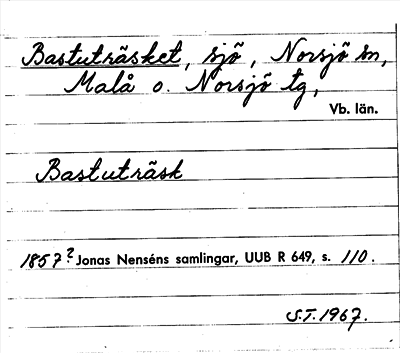 Bastuträsket, sjö, Norsjö sn,
Malå o. Norsjö tg,
Vb. län.
Bastuträsk
1857? Jonas Nenséns samlingar, UUB R 649, s. 110.
S.T. 1967.